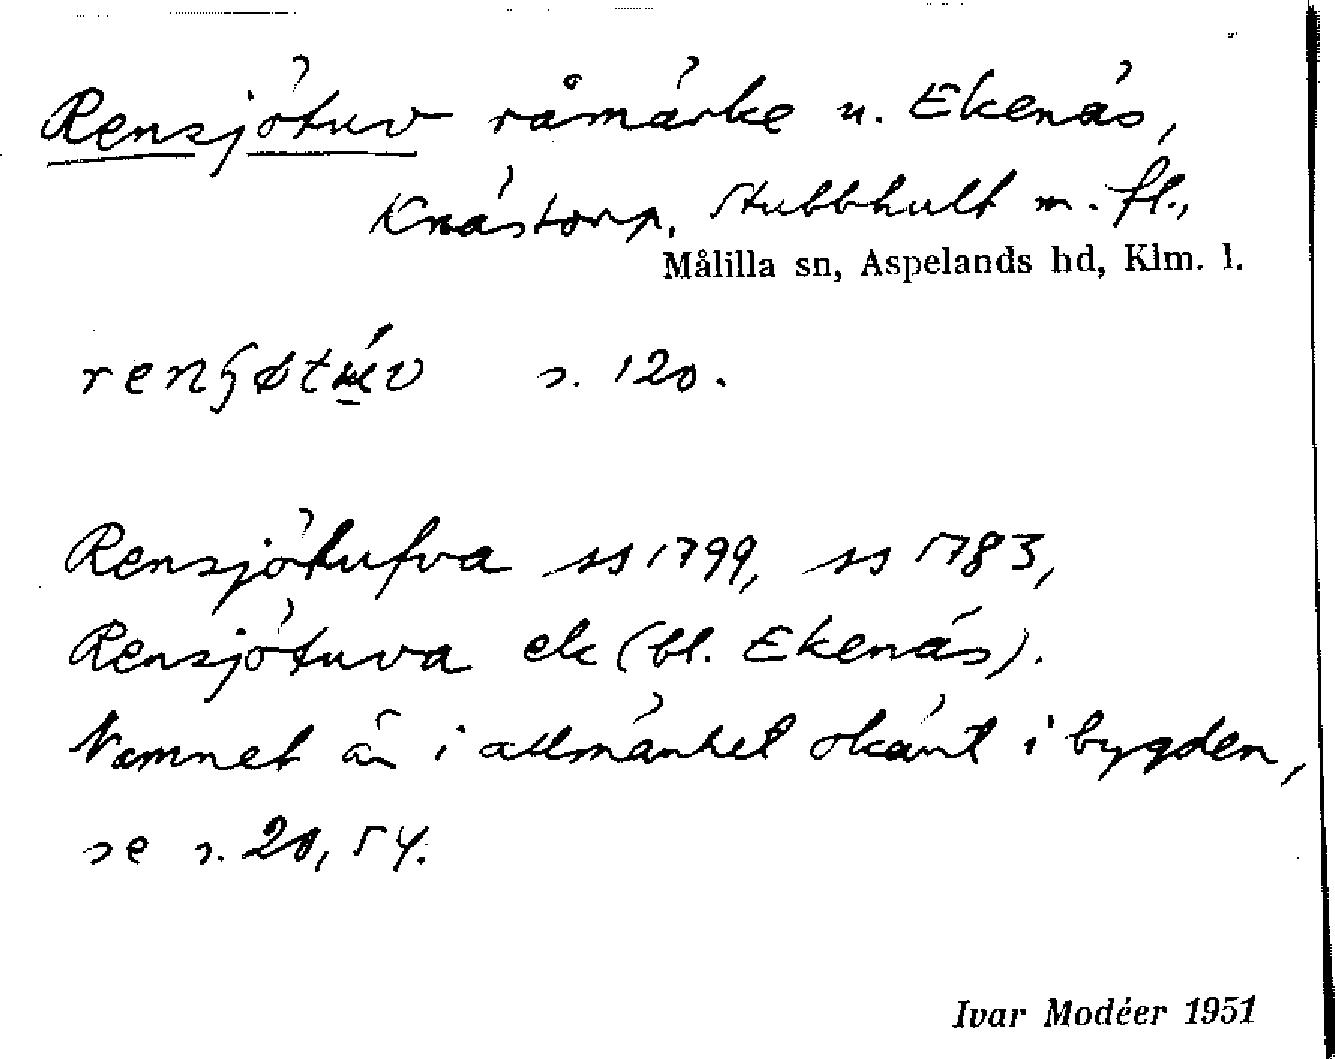 Rensjötuv råmärke u. Ekenäs,
Knästorp, Stubbhult m. fl.,
Målilla sn, Aspelands hd, Klm. l.
s. 120.
Rensjötufva ss 1799, ss 1783,
Rensjötuva ek (bl. Ekenäs).
Namnet är i allmänhet okänt i bygden,
se s. 20, 54.
Ivar Modéer 1951